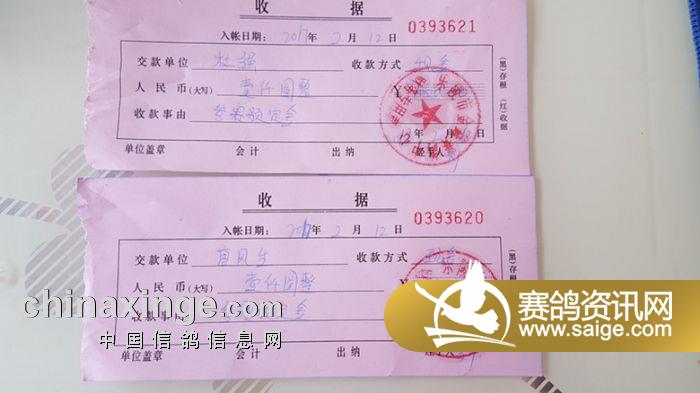 收 据
入帐日期：2017年 2 月 12 日 0393621
交款单位 杜强 收款方式 现金
人民币(大写) 壹仟圆整 ￥
收款事由 参赛预定金
年 月
单位盖章 会计 出纳 经手人
(黑)存根 (红)收据
收 据
入帐日期：2017年 2 月 12 日 0393620
交款单位 收款方式 现金
人民币(大写) 壹仟圆整 ￥
收款事由 金
单位盖章 会计 出纳 经手人
(黑)存根
chinaxinge.com
中国信鸽信息网
赛鸽资讯网
www.saige.com